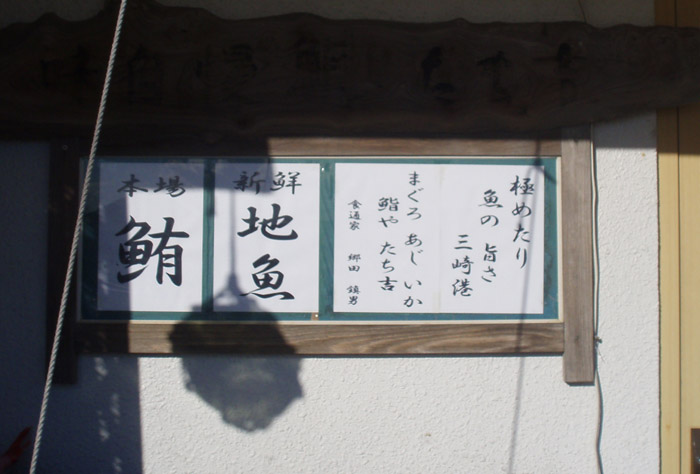 極めたり
魚の 旨さ
三崎港
まぐろ あじ いか
鮨や たち吉
食通家 郷田 鎮男
新鮮
地魚
本場
鮪